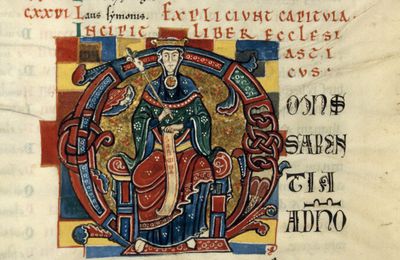 CXXVI Laus symonis. EXPLICIUNT CAPITULA.
INCIPIT LIBER ECCLESI
ASTI
CUS:
OMNS
SAPIEN
TIA
ADNO